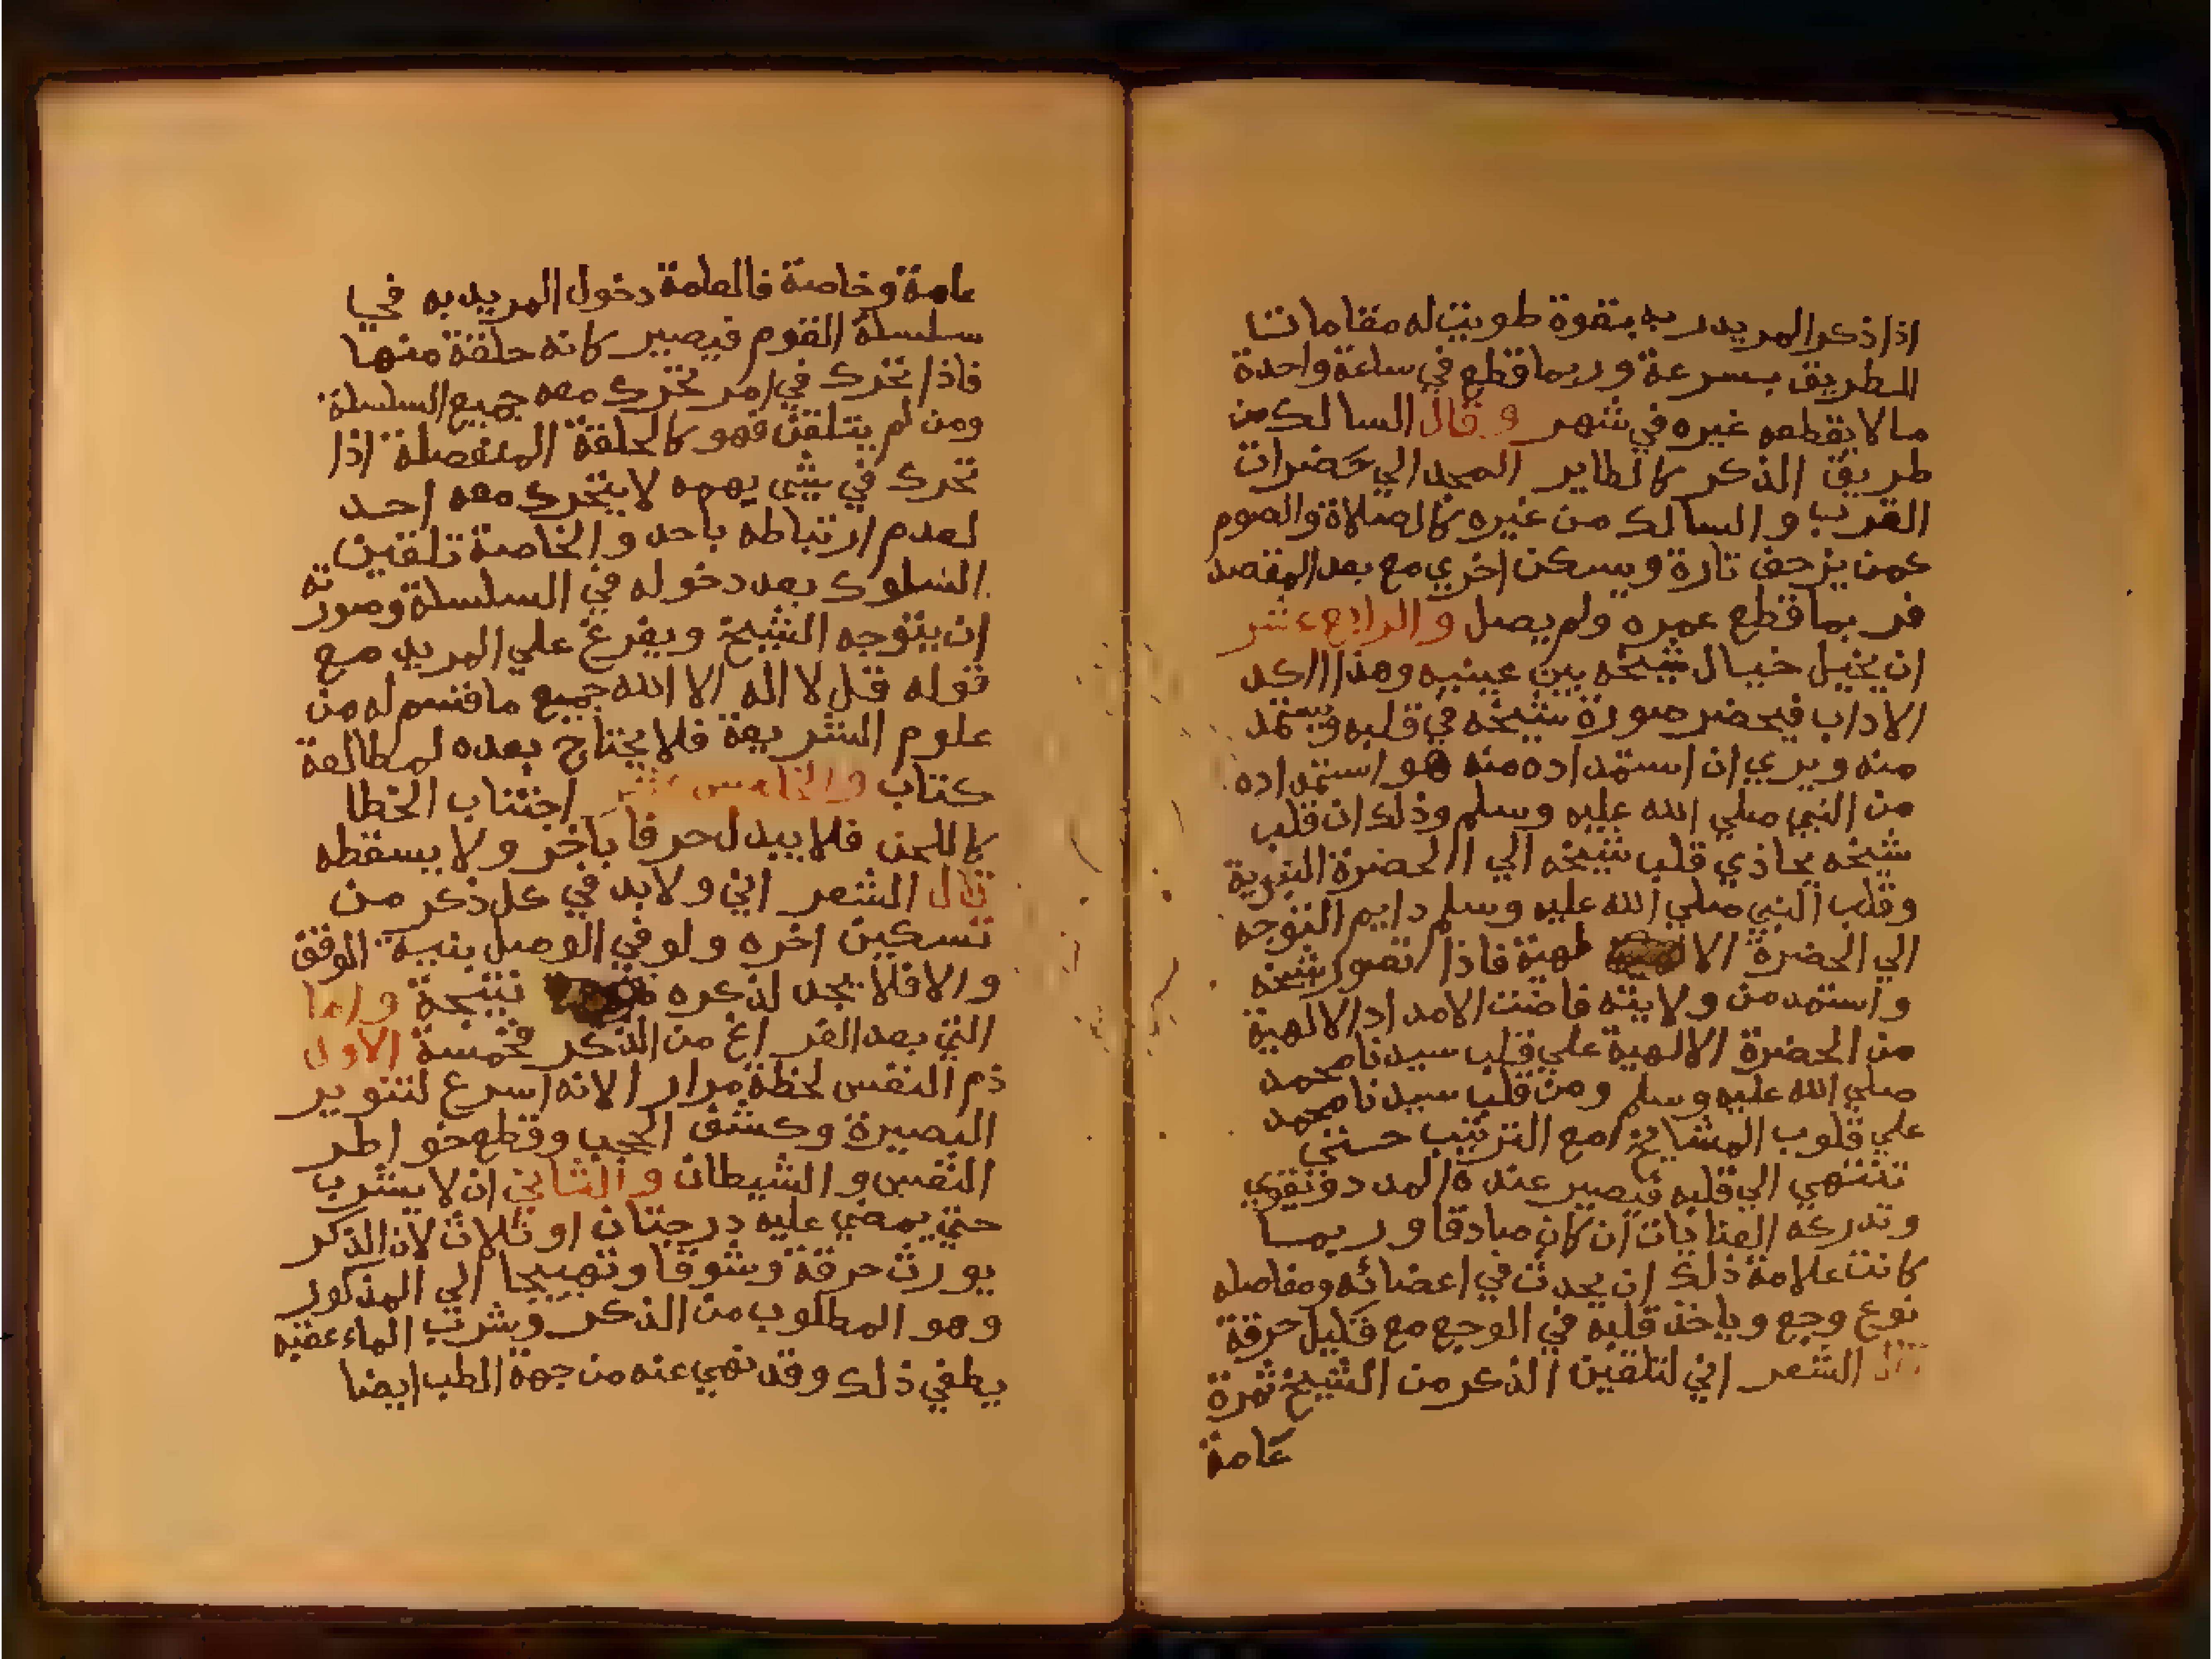 اذا ذكر المريد ربه بقوة طويت له مقامات
الطريق بسرعة وربما قطع في ساعة واحدة
ما لا يقطعه غيره في شهر وقال السالك من
طريق الذكر كالطاير المجد الي حضرات
القرب والسالك من غيره كالصلاة والصوم
كمن يزحف تارة ويسكن اخري مع بعد المقصد
فربما قطع عمره ولم يصل والرابع عشر
ان يخيل خيال شيخه بين عينيه وهذا اكد
الاداب فيحضر صورة شيخه في قلبه ويستمد
منه ويري ان استمداده منه هو استمداده
من النبي صلي الله عليه وسلم وذلك ان قلب
شيخه يحاذي قلب شيخه الي الحضرة النبوية
وقلب النبي صلي الله عليه وسلم دايم التوجه
الي الحضرة الا لهية فاذا تصور شيخه
واستمد من ولايته فاضت الامداد الالهية
من الحضرة الالهية علي قلب سيدنا محمد
صلي الله عليه وسلم ومن قلب سيدنا محمد
علي قلوب المشايخ مع الترتيب حتي
تنتهي الي قلبه فيصير عنده المدد وتقوي
وتدركه العنايات ان كان صادقا وربما
كانت علامة ذلك ان يحدث في اعضائه ومفاصله
نوع وجع وياخذ قلبه في الوجع مع قليل حرقة
قال الشعراني لتلقين الذكر من الشيخ ثمرة
عامة
عامة وخاصة فالعامة دخول المريد به في
سلسلة القوم فيصير كانه حلقة منها
فاذا تحرك في امر تحرك معه جميع السلسلة
ومن لم يتلقن فهو كالحلقة المنفصلة اذا
تحرك في شي يهمه لا يتحرك معه احد
لعدم ارتباطه باحد والخاصة تلقين
السلوك بعد دخوله في السلسلة وصورته
ان يتوجه الشيخ ويفرغ علي المريد مع
قوله قل لا اله الا الله جميع ما قسم له من
علوم الشريعة فلا يحتاج بعده لمطالعة
كتاب والخامس عشر اجتناب الخطا
كاللحن فلا يبدل حرفا باخر ولا يسقطه
قال الشعراني ولا بد في كل ذكر من
تسكين اخره ولو في الوصل بنية الوقف
والا فلا يجد لذكره نتيجة واما
التي بعد الفراغ من الذكر فخمسة الاول
ذم النفس لحظة مرارا لانه اسرع لتنوير
البصيرة وكشف الحجب وقطع خواطر
النفس والشيطان والثاني ان لا يشرب
حتي يمضي عليه درجتان او ثلاث لان الذكر
يورث حرقة وشوقا وتهييجا الي المذكور
وهو المطلوب من الذكر وشرب الماء عقبه
يطفي ذلك وقد نهي عنه من جهة الطب ايضا